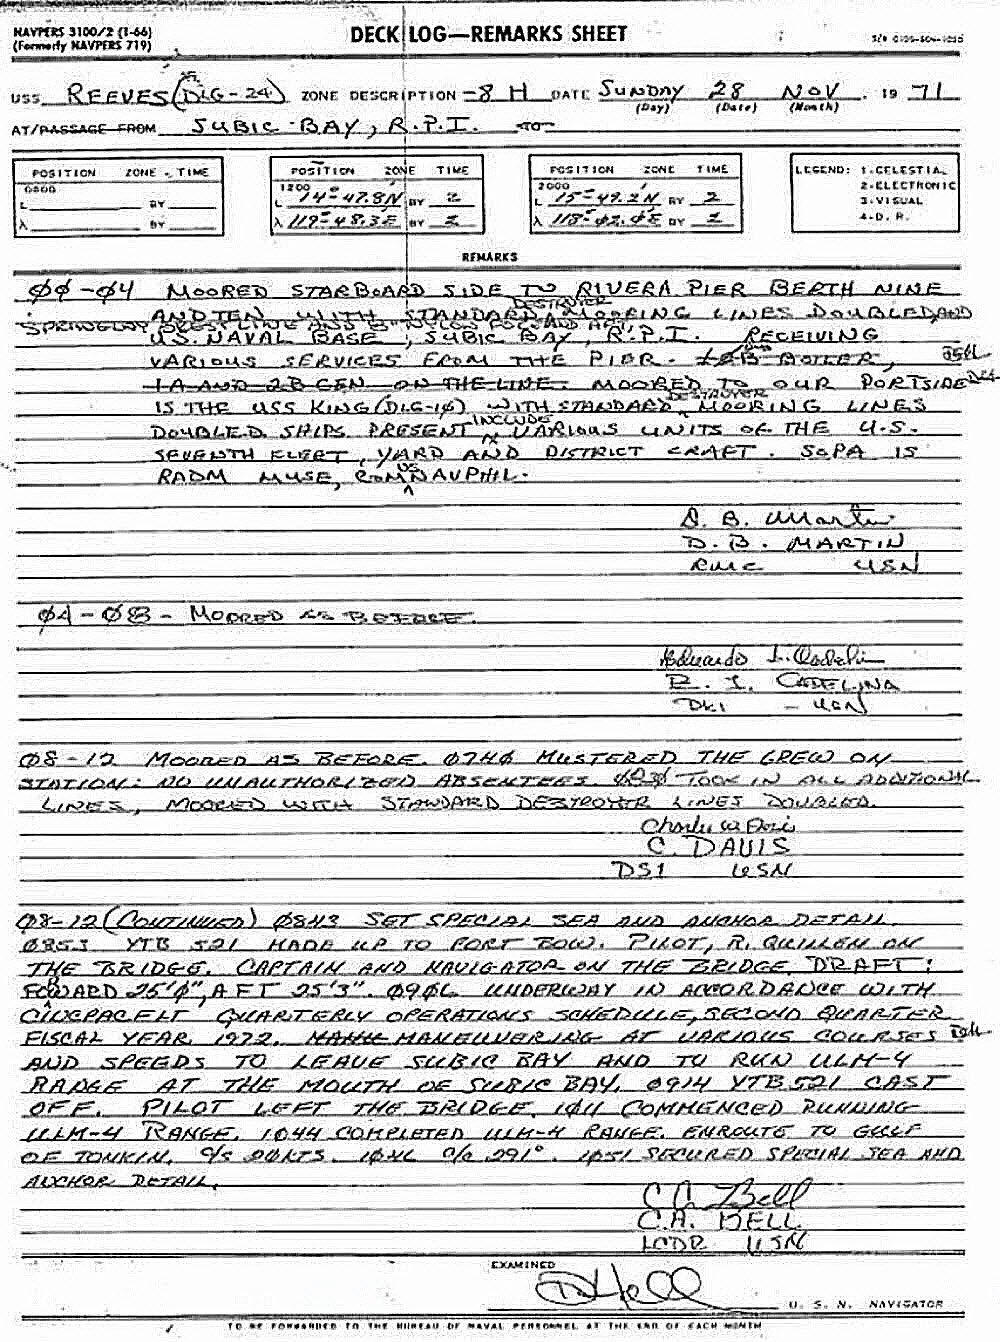 NAVPERS 3100/2 (1-66)
(Formerly NAVPERS 719)
DECK LOG—REMARKS SHEET
USS REEVES (DLG-24) ZONE DESCRIPTION -8 H DATE SUNDAY 28 NOV 19 71
(Day) (Date) (Month)
AT/PASSAGE FROM SUBIC BAY, R.P.I. TO
POSITION ZONE TIME
0800
L BY
λ BY
POSITION ZONE TIME
1200
L 14°-47.8'N BY 2
λ 119°-48.3'E BY 2
POSITION ZONE TIME
2000
L 15°-49.2'N BY 2
λ 118°-02.0'E BY 2
LEGEND: 1-CELESTIAL
2-ELECTRONIC
3-VISUAL
4-D. R.
REMARKS
ØØ-Ø4 MOORED STARBOARD SIDE TO RIVERA PIER BERTH NINE
AND TEN WITH STANDARD DESTROYER MOORING LINES DOUBLED, AND
SPRINGLAY BREAST LINE AND 8" NYLON FORE AND AFT,
U.S. NAVAL BASE, SUBIC BAY, R.P.I. RECEIVING
VARIOUS SERVICES FROM THE PIER. BOILER,
1A AND 2B GEN ON THE LINE. MOORED TO OUR PORTSIDE
IS THE USS KING (DLG-1Ø) WITH STANDARD DESTROYER MOORING LINES
DOUBLED. SHIPS PRESENT INCLUDE VARIOUS UNITS OF THE U.S.
SEVENTH FLEET, YARD AND DISTRICT CRAFT. SOPA IS
RADM MUSE, COMUSNAVPHIL.
D. B. Martin
D. B. MARTIN
RMC USN
Ø4-Ø8 - MOORED AS BEFORE.
E. I. CADELINA
DK1 - USN
Ø8-12 MOORED AS BEFORE. Ø74Ø MUSTERED THE CREW ON
STATION: NO UNAUTHORIZED ABSENTEES. Ø83Ø TOOK IN ALL ADDITIONAL
LINES, MOORED WITH STANDARD DESTROYER LINES DOUBLED.
Charles W Davis
C. DAVIS
DS1 USN
Ø8-12 (CONTINUED) Ø843 SET SPECIAL SEA AND ANCHOR DETAIL.
Ø853 YTB 521 MADE UP TO PORT BOW. PILOT, R. QUILLEN ON
THE BRIDGE. CAPTAIN AND NAVIGATOR ON THE BRIDGE. DRAFT:
FORWARD 25'Ø", AFT 25'3". Ø9Ø6 UNDERWAY IN ACCORDANCE WITH
CINCPACFLT QUARTERLY OPERATIONS SCHEDULE, SECOND QUARTER
FISCAL YEAR 1972. MANEUVERING AT VARIOUS COURSES
AND SPEEDS TO LEAVE SUBIC BAY AND TO RUN ULM-4
RANGE AT THE MOUTH OF SUBIC BAY. Ø914 YTB 521 CAST
OFF. PILOT LEFT THE BRIDGE. 1Ø11 COMMENCED RUNNING
ULM-4 RANGE. 1Ø44 COMPLETED ULM-4 RANGE. ENROUTE TO GULF
OF TONKIN. C/S 2ØKTS. 1Ø46 C/C 291°. 1Ø51 SECURED SPECIAL SEA AND
ANCHOR DETAIL.
C A Bell
C.A. BELL
LCDR USN
EXAMINED
U. S. N. NAVIGATOR
TO BE FORWARDED TO THE BUREAU OF NAVAL PERSONNEL AT THE END OF EACH MONTH